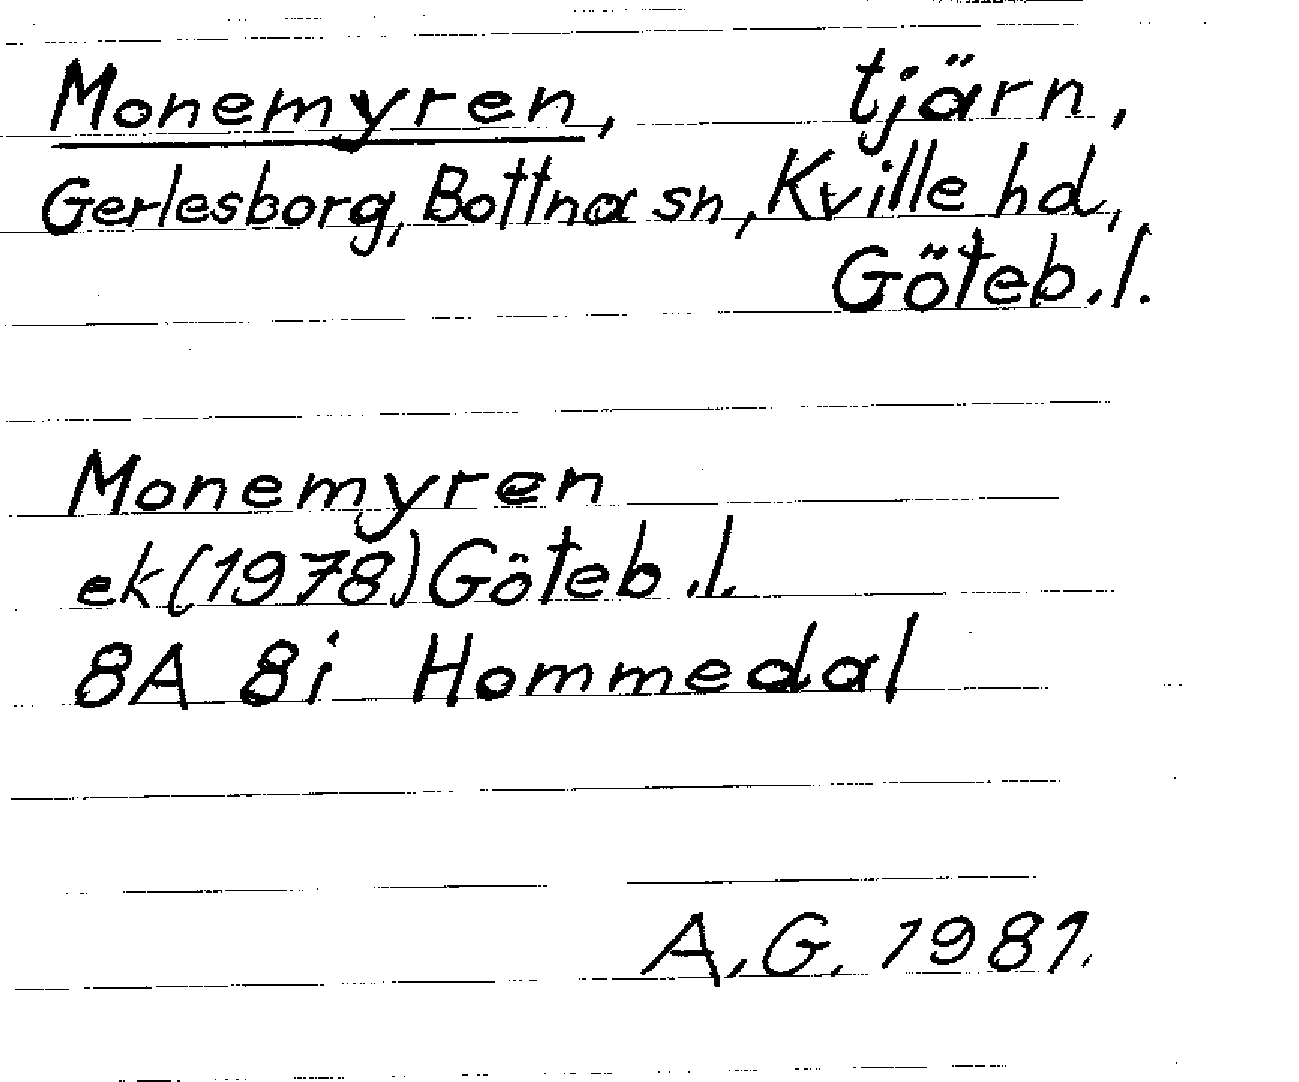 Monemyren, tjärn,
Gerlesborg, Bottna sn, Kville hd,
Göteb.l.
Monemyren
ek(1978) Göteb.l.
8A 8i Hommedal
A.G. 1981.